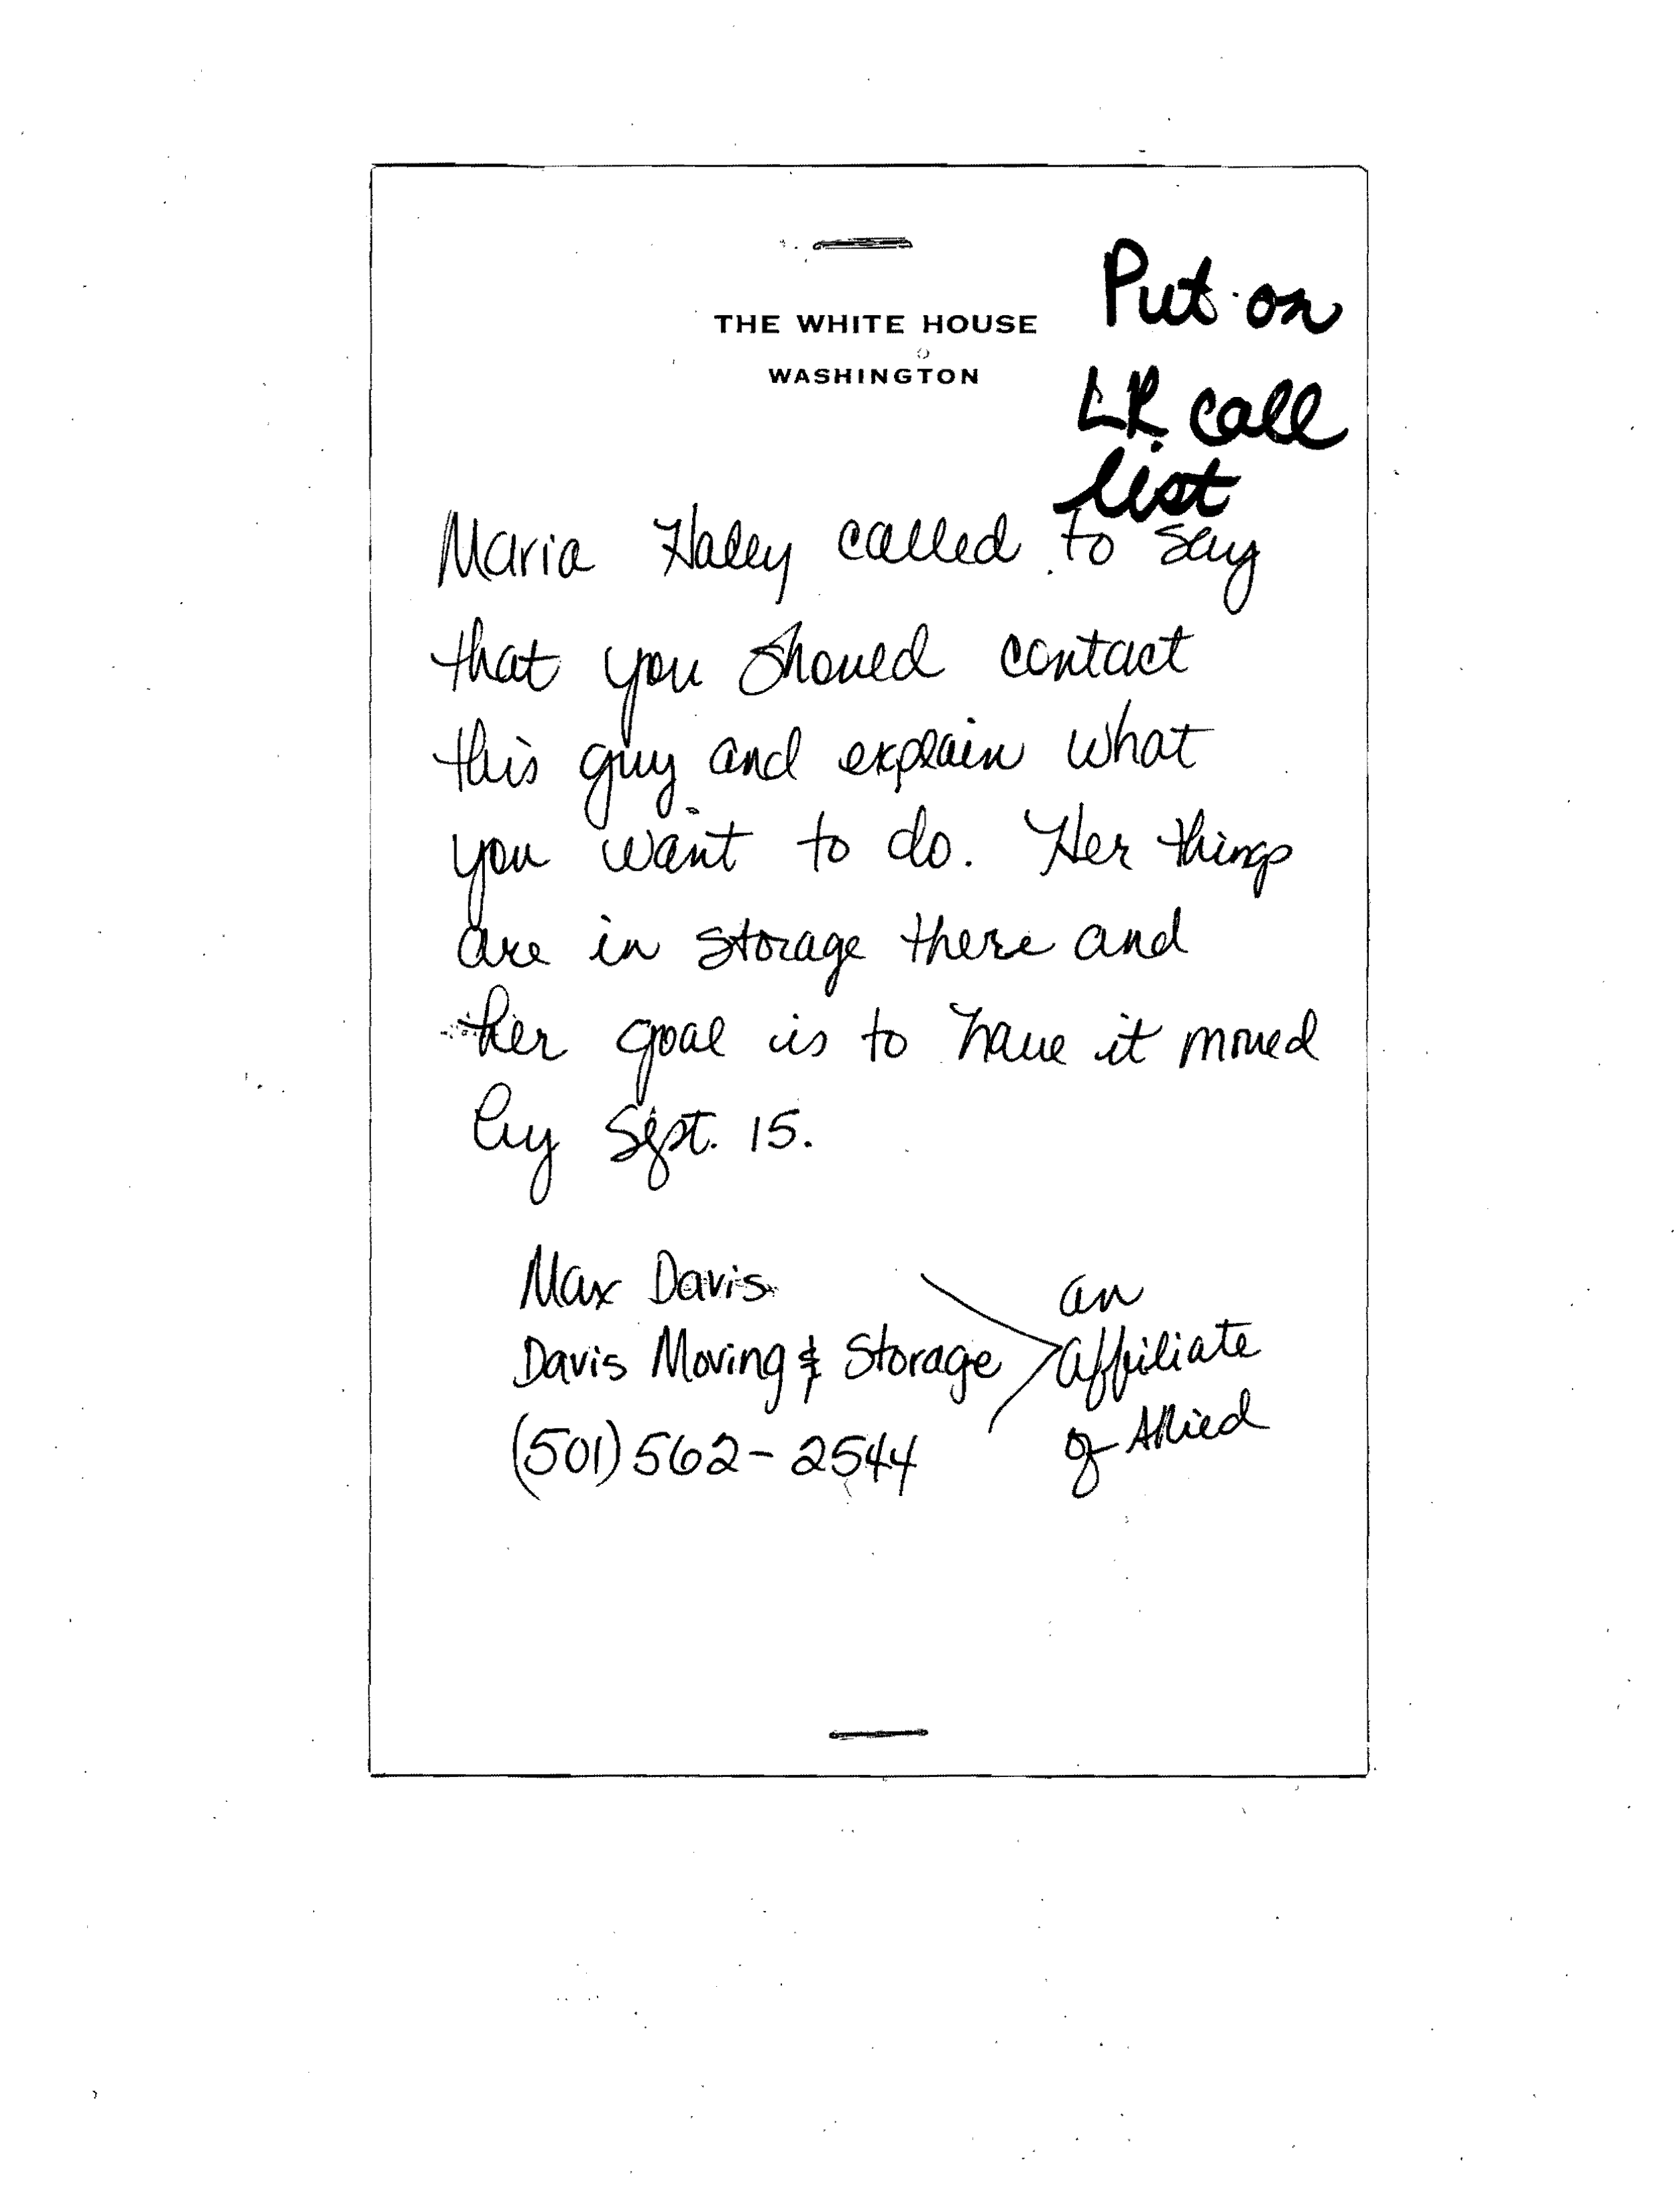 Put on
THE WHITE HOUSE
WASHINGTON
LR call
list
Maria Haley called to say
that you should contact
this guy and explain what
you want to do. Her things
are in storage there and
her goal is to have it moved
by Sept. 15.
Max Davis
Davis Moving & Storage
(501) 562-2544
an
affiliate
of Allied